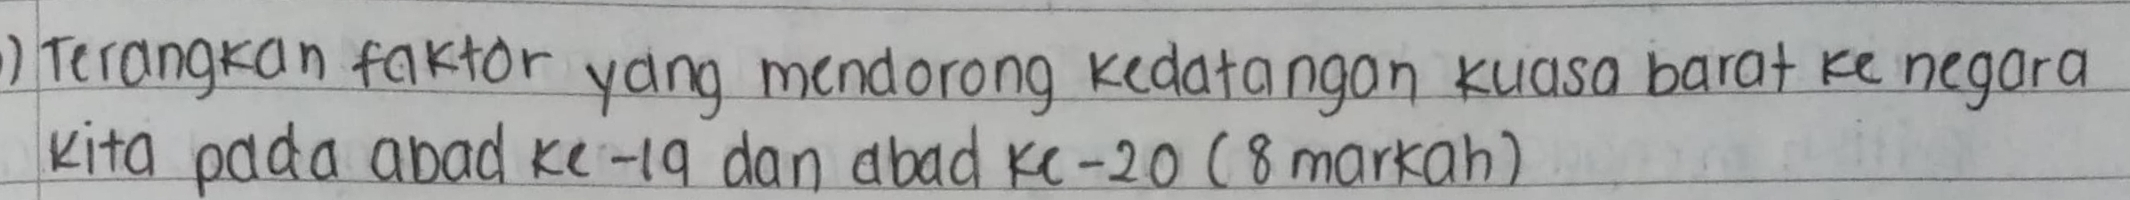 ) Terangkan faktor yang mendorong kedatangan kuasa barat ke negara
kita pada abad ke-19 dan abad ke-20 (8 markah)